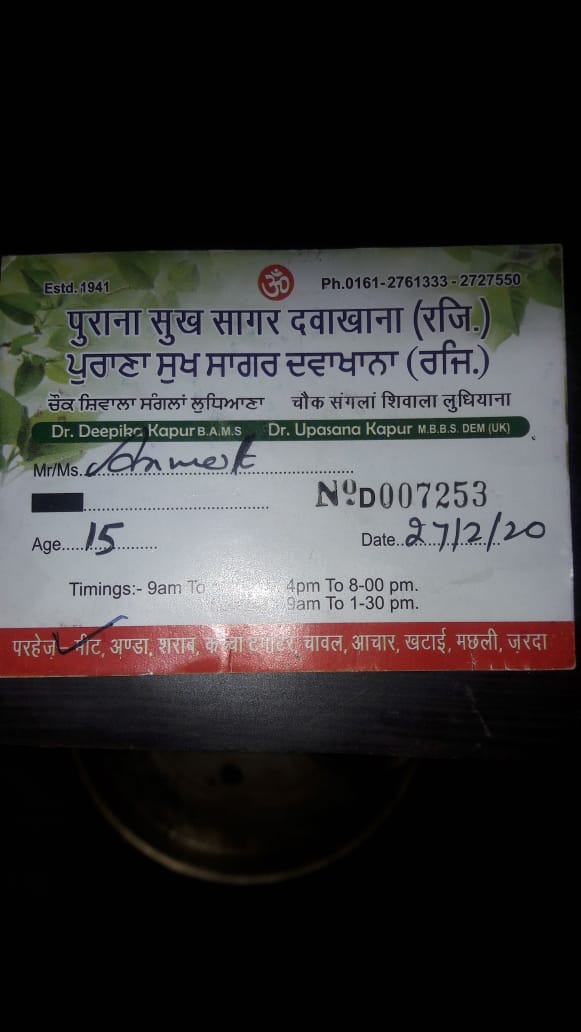 Estd. 1941 ॐ Ph.0161-2761333 - 2727550
पुराना सुख सागर दवाखाना (रजि.)
ਪੁਰਾਣਾ ਸੁਖ ਸਾਗਰ ਦਵਾਖਾਨਾ (ਰਜਿ.)
ਚੌਕ ਸ਼ਿਵਾਲਾ ਸੰਗਲਾਂ ਲੁਧਿਆਣਾ चौक संगलां शिवाला लुधियाना
Dr. Deepika Kapur B.A.M.S Dr. Upasana Kapur M.B.B.S. DEM (UK)
Mr/Ms.
NºD007253
Age......15............ Date..27/2/20
Timings:- 9am To 4pm To 8-00 pm.
9am To 1-30 pm.
परहेज़ मीट, अण्डा, शराब, कच्चा टमाटर, चावल, आचार, खटाई, मछली, ज़रदा